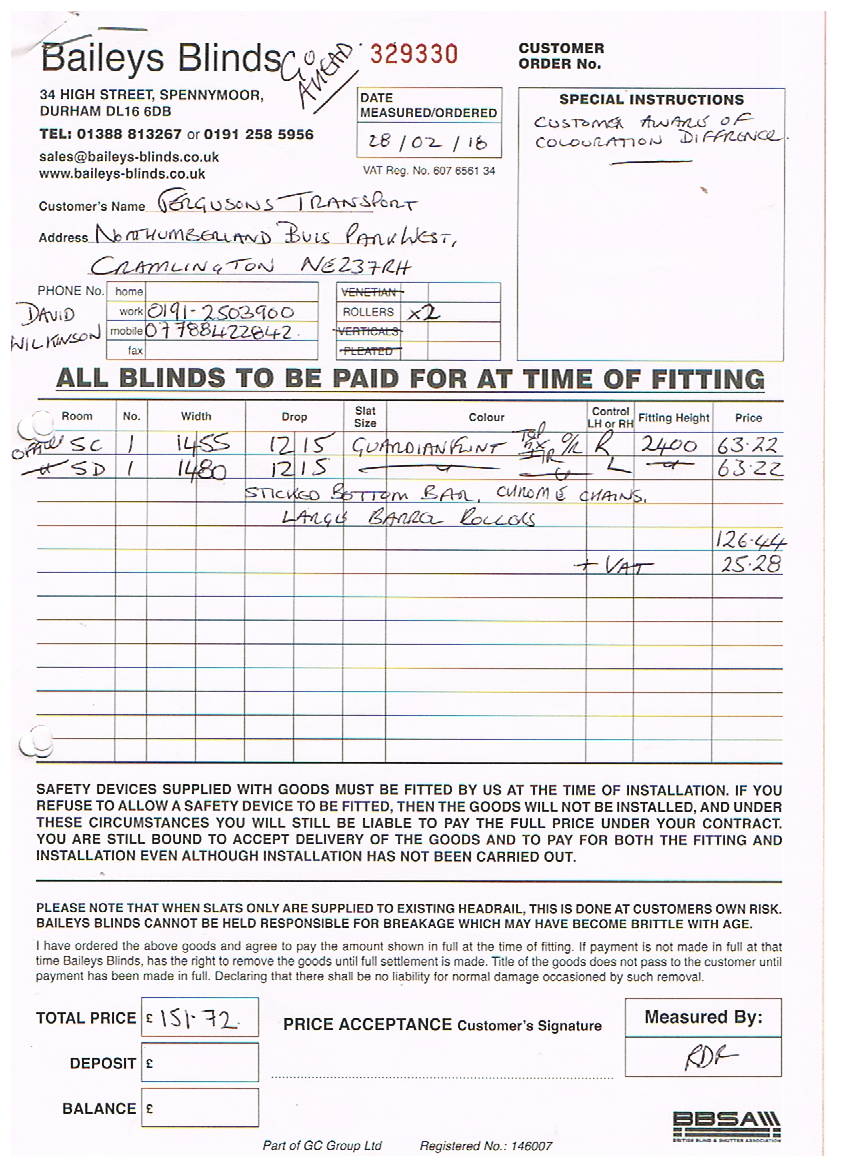 Baileys Blinds
GO AHEAD
329330
CUSTOMER
ORDER No.
34 HIGH STREET, SPENNYMOOR,
DURHAM DL16 6DB
TEL: 01388 813267 or 0191 258 5956
sales@baileys-blinds.co.uk
www.baileys-blinds.co.uk
DATE
MEASURED/ORDERED
28/02/18
VAT Reg. No. 607 6561 34
SPECIAL INSTRUCTIONS
CUSTOMER AWARE OF
COLOURATION DIFFRENCE.
Customer's Name FERGUSONS TRANSPORT
Address NORTHUMBERLAND BUIS PARK WEST,
CRAMLINGTON NE237RH
PHONE No. home
DAVID work 0191-2503900
WILKINSON mobile 07788422842.
fax
VENETIAN
ROLLERS x2
VERTICALS
PLEATED
ALL BLINDS TO BE PAID FOR AT TIME OF FITTING
Room No. Width Drop Slat Size Colour Control LH or RH Fitting Height Price
SC 1 1455 1215 GUARDIAN FLINT O/R R 2400 63.22
SD 1 1480 1215 L 63.22
BOTTOM BAR, CHROME CHAINS.
LARGE BARREL ROLLERS
126.44
+ VAT 25.28
SAFETY DEVICES SUPPLIED WITH GOODS MUST BE FITTED BY US AT THE TIME OF INSTALLATION. IF YOU
REFUSE TO ALLOW A SAFETY DEVICE TO BE FITTED, THEN THE GOODS WILL NOT BE INSTALLED, AND UNDER
THESE CIRCUMSTANCES YOU WILL STILL BE LIABLE TO PAY THE FULL PRICE UNDER YOUR CONTRACT.
YOU ARE STILL BOUND TO ACCEPT DELIVERY OF THE GOODS AND TO PAY FOR BOTH THE FITTING AND
INSTALLATION EVEN ALTHOUGH INSTALLATION HAS NOT BEEN CARRIED OUT.
PLEASE NOTE THAT WHEN SLATS ONLY ARE SUPPLIED TO EXISTING HEADRAIL, THIS IS DONE AT CUSTOMERS OWN RISK.
BAILEYS BLINDS CANNOT BE HELD RESPONSIBLE FOR BREAKAGE WHICH MAY HAVE BECOME BRITTLE WITH AGE.
I have ordered the above goods and agree to pay the amount shown in full at the time of fitting. If payment is not made in full at that
time Baileys Blinds, has the right to remove the goods until full settlement is made. Title of the goods does not pass to the customer until
payment has been made in full. Declaring that there shall be no liability for normal damage occasioned by such removal.
TOTAL PRICE £ 151.72.
PRICE ACCEPTANCE Customer's Signature
Measured By:
RDF
DEPOSIT £
BALANCE £
BBSA
BRITISH BLIND & SHUTTER ASSOCIATION
Part of GC Group Ltd Registered No.: 146007